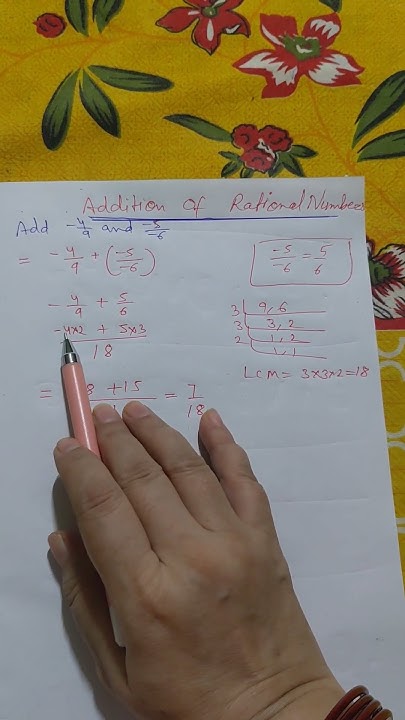 Addition of Rational Numbers
Add -4/9 and -5/-6
= -4/9 + (-5/-6)
-5/-6 = 5/6
-4/9 + 5/6
-4×2 + 5×3
18
3 | 9, 6
3 | 3, 2
2 | 1, 2
1, 1
LCM = 3×3×2=18
= 8 +15 = 7/18